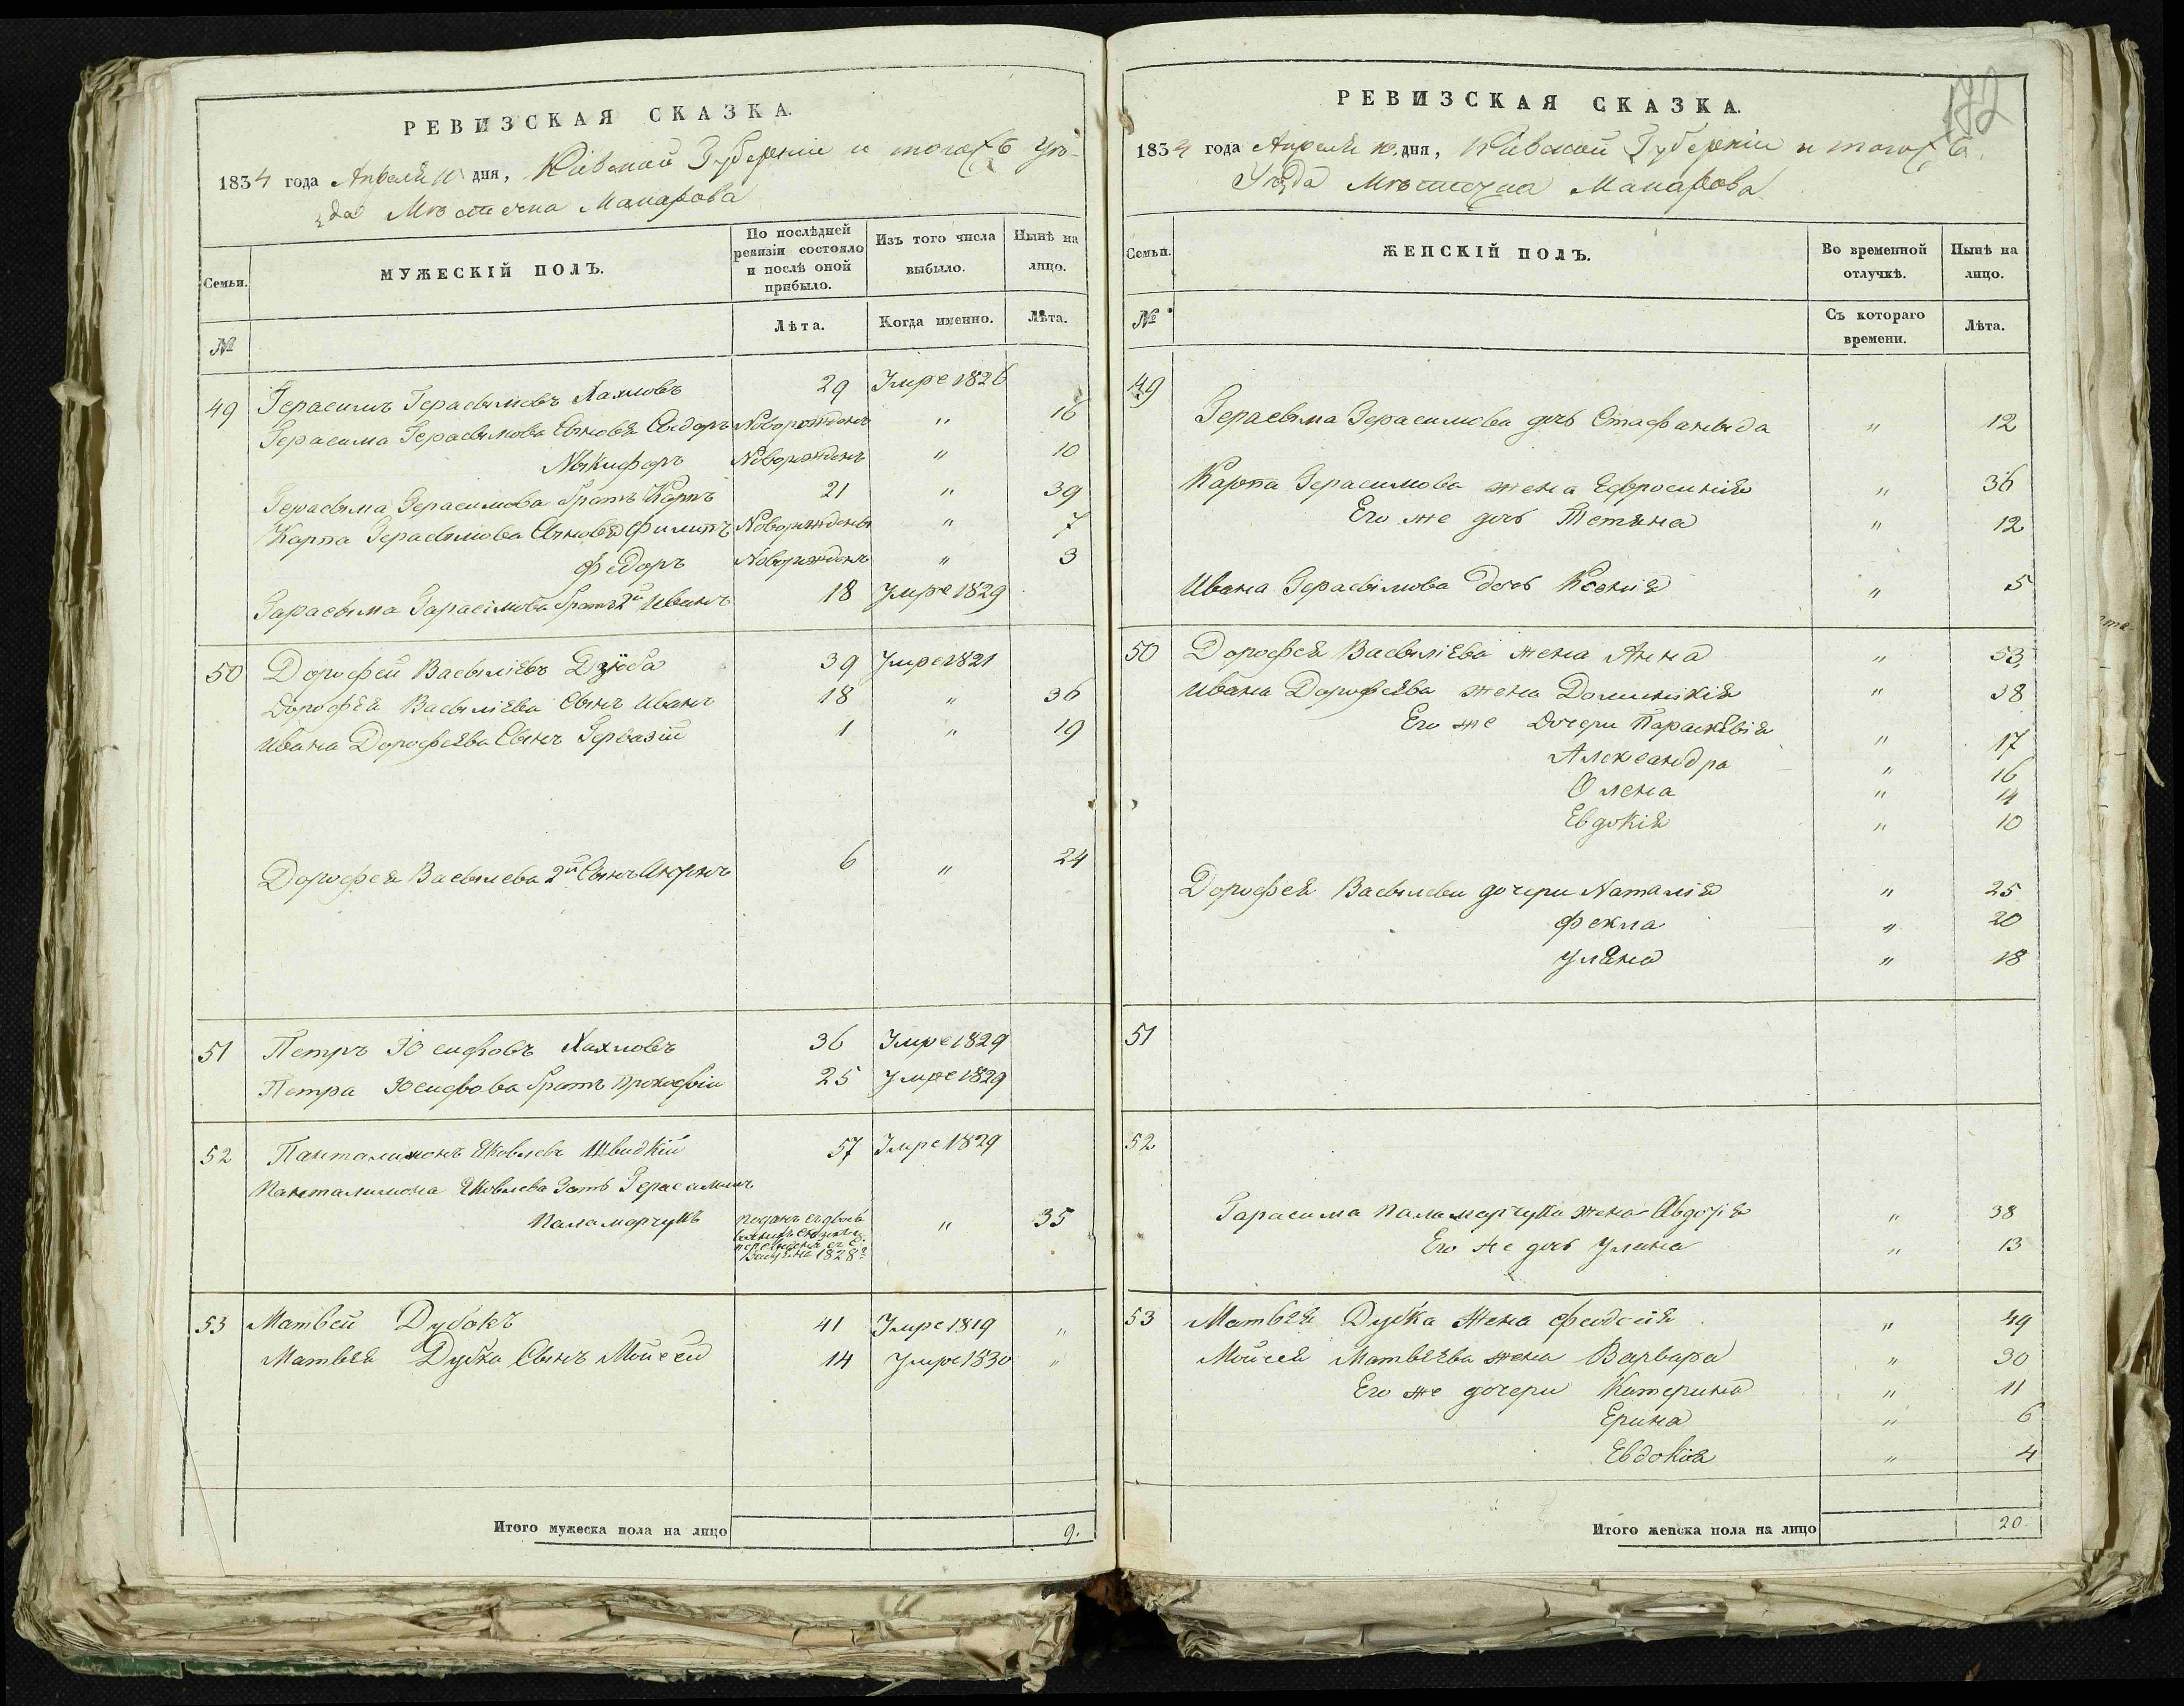 РЕВИЗСКАЯ СКАЗКА.
1834 года Апреля 10 дня, Кіевской Губерніи и тогожъ Уѣ-
зда Мѣстечка Макарова
Семьи.
МУЖЕСКІЙ ПОЛЪ.
По послѣдней ревизіи состояло и послѣ оной прибыло.
Изъ того числа выбыло.
Нынѣ на лицо.
№
Лѣта.
Когда именно.
Лѣта.
49 Герасимъ Герасымовъ Хахловъ 29 Умре 1826
Герасима Герасымова Сыновья Сыдоръ Новорожденъ " 16
Ныкифоръ Новорожденъ " 10
Герасыма Герасимова братъ Карпъ 21 " 39
Карпа Герасымова Сыновья Филипъ Новорожденъ " 7
Федоръ Новорожденъ " 3
Гарасыма Гарасімова братъ 2й Иванъ 18 Умре 1829
50 Дорофей Васыліевъ Дзюба 39 Умре 1821
Дорофея Васыліева Сынъ Иванъ 18 " 36
Ивана Дорофеева Сынъ Гервазій 1 " 19
Дорофея Васылева 2й Сынъ 6 " 24
51 Петръ Юсифовъ Хахловъ 36 Умре 1829
Петра Юсифова братъ Прокофій 25 Умре 1829
52 Панталимонъ Яковлевъ Швидкій 57 Умре 1829
Панталимона Яковлева Зять Герасимъ
Паламарчукъ " 35
1828
53 Матвей Дубокъ 41 Умре 1819 "
Матвея Дубка Сынъ Мойсей 14 Умре 1830 "
Итого мужеска пола на лицо 9.
172
РЕВИЗСКАЯ СКАЗКА.
1834 года Апреля 10 дня, Кіевской Губерніи и тогожъ
Уѣзда Мѣстечка Макарова
Семьи.
ЖЕНСКІЙ ПОЛЪ.
Во временной отлучкѣ.
Нынѣ на лицо.
№
Съ котораго времени.
Лѣта.
49
Герасыма Герасимова дочь Стафаныда " 12
Карпа Герасимова жена Ефросинія " 36
Его же дочь Тетяна " 12
Ивана Герасымова дочь Ксенія " 5
50 Дорофея Васыліева жена Анна " 53
Ивана Дорофеева жена Доминикія " 38
Его же Дочери Параскевія " 17
Александра " 16
Олена " 14
Евдокія " 10
Дорофея Васылева дочери Наталія " 25
Фекла " 20
Уляна " 18
51
52
Гарасима Паламарчука жена Авдотія " 38
Его же дочь Уляна " 13
53 Матвея Дубка Жена Феодосія " 49
Мойсея Матвеева жена Варвара " 30
Его же дочери Катерина " 11
Ерина " 6
Евдокія " 4
Итого женска пола на лицо 20.